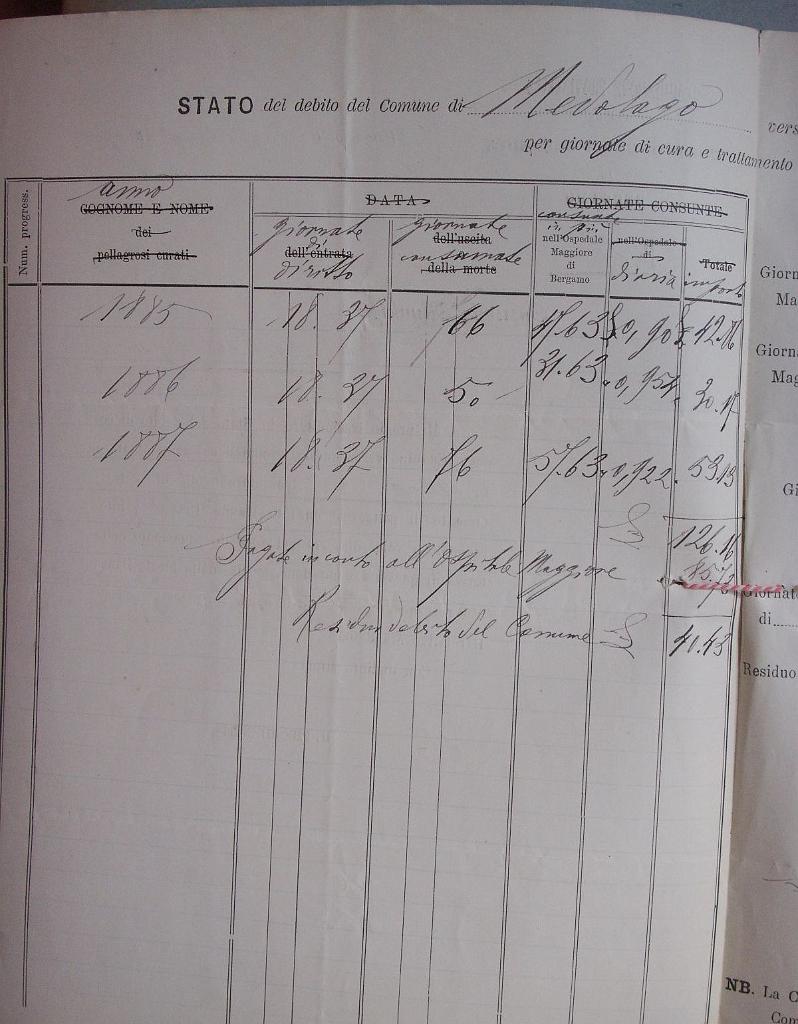 STATO del debito del Comune di Medolago vers
per giornate di cura e trattamento
Num. progress.
anno
COGNOME E NOME
dei
pellagrosi curati
DATA
giornate
di
dell'entrata
diritto
giornate
dell'uscita
consumate
della morte
GIORNATE CONSUNTE
consunte
in più
nell'Ospedale
Maggiore
di
Bergamo
nell'Ospedale
di
diaria
Totale
importo
1885 18.37 66 47.63 £ 0,90 £ 42.86
1886 18.37 50 31.63 0,954 30.17
1887 18.37 76 57.63 0,922 53.13
£ 126.16
Pagate in conto all'Ospitale Maggiore 85.73
Residuo debito del Comune £ 40.43
Giorn
Ma
Giorn
Mag
Gi
Giornat
di
Residuo
NB. La C
Com